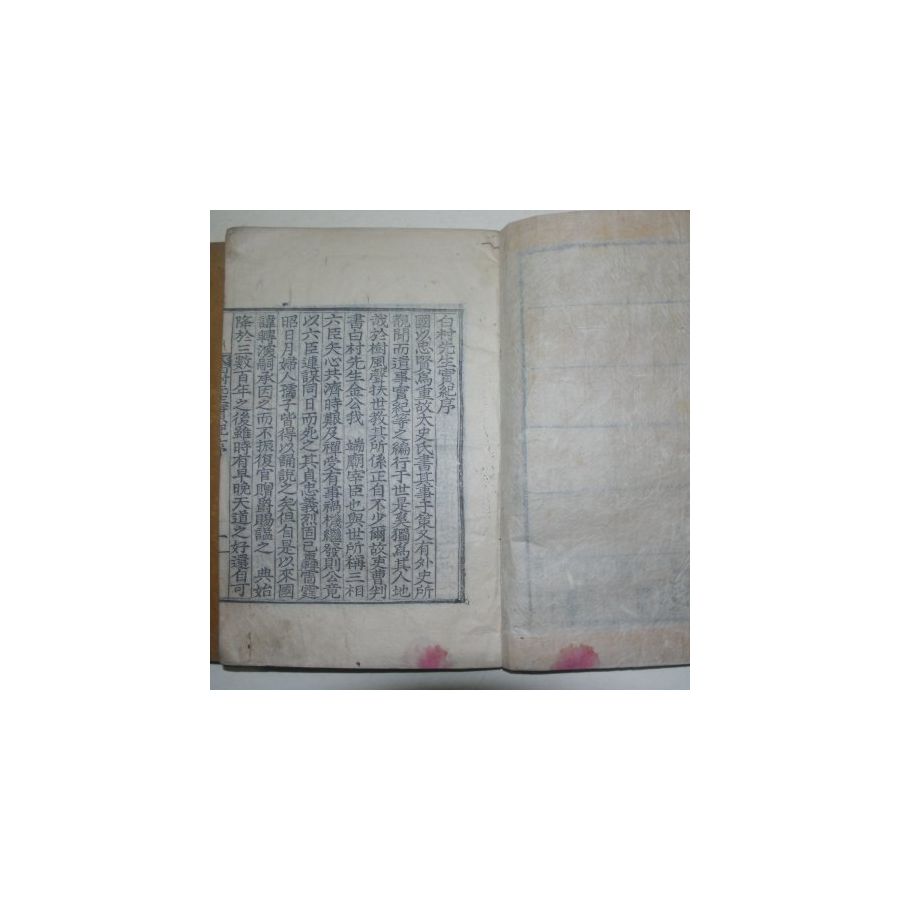 白村先生實紀序
國以忠賢爲重故太史氏書其事于策又有外史所
觀聞而遺事實紀等之編行于世是奚獨爲其人地
哉於樹風聲扶世敎其所係正自不少爾故吏曹判
書白村先生金公我 端廟宰臣也與世所稱三相
六臣矢心共濟時艱及禪受有事禍機繼發則公竟
以六臣連謀同日而死之其貞忠義烈固已轟雷霆
昭日月婦人孺子皆得以誦說之矣但自是以來國
諱轉深嗣承因之而不振復官贈爵賜謚之 典始
降於三數百年之後雖時有早晚天道之好還自可